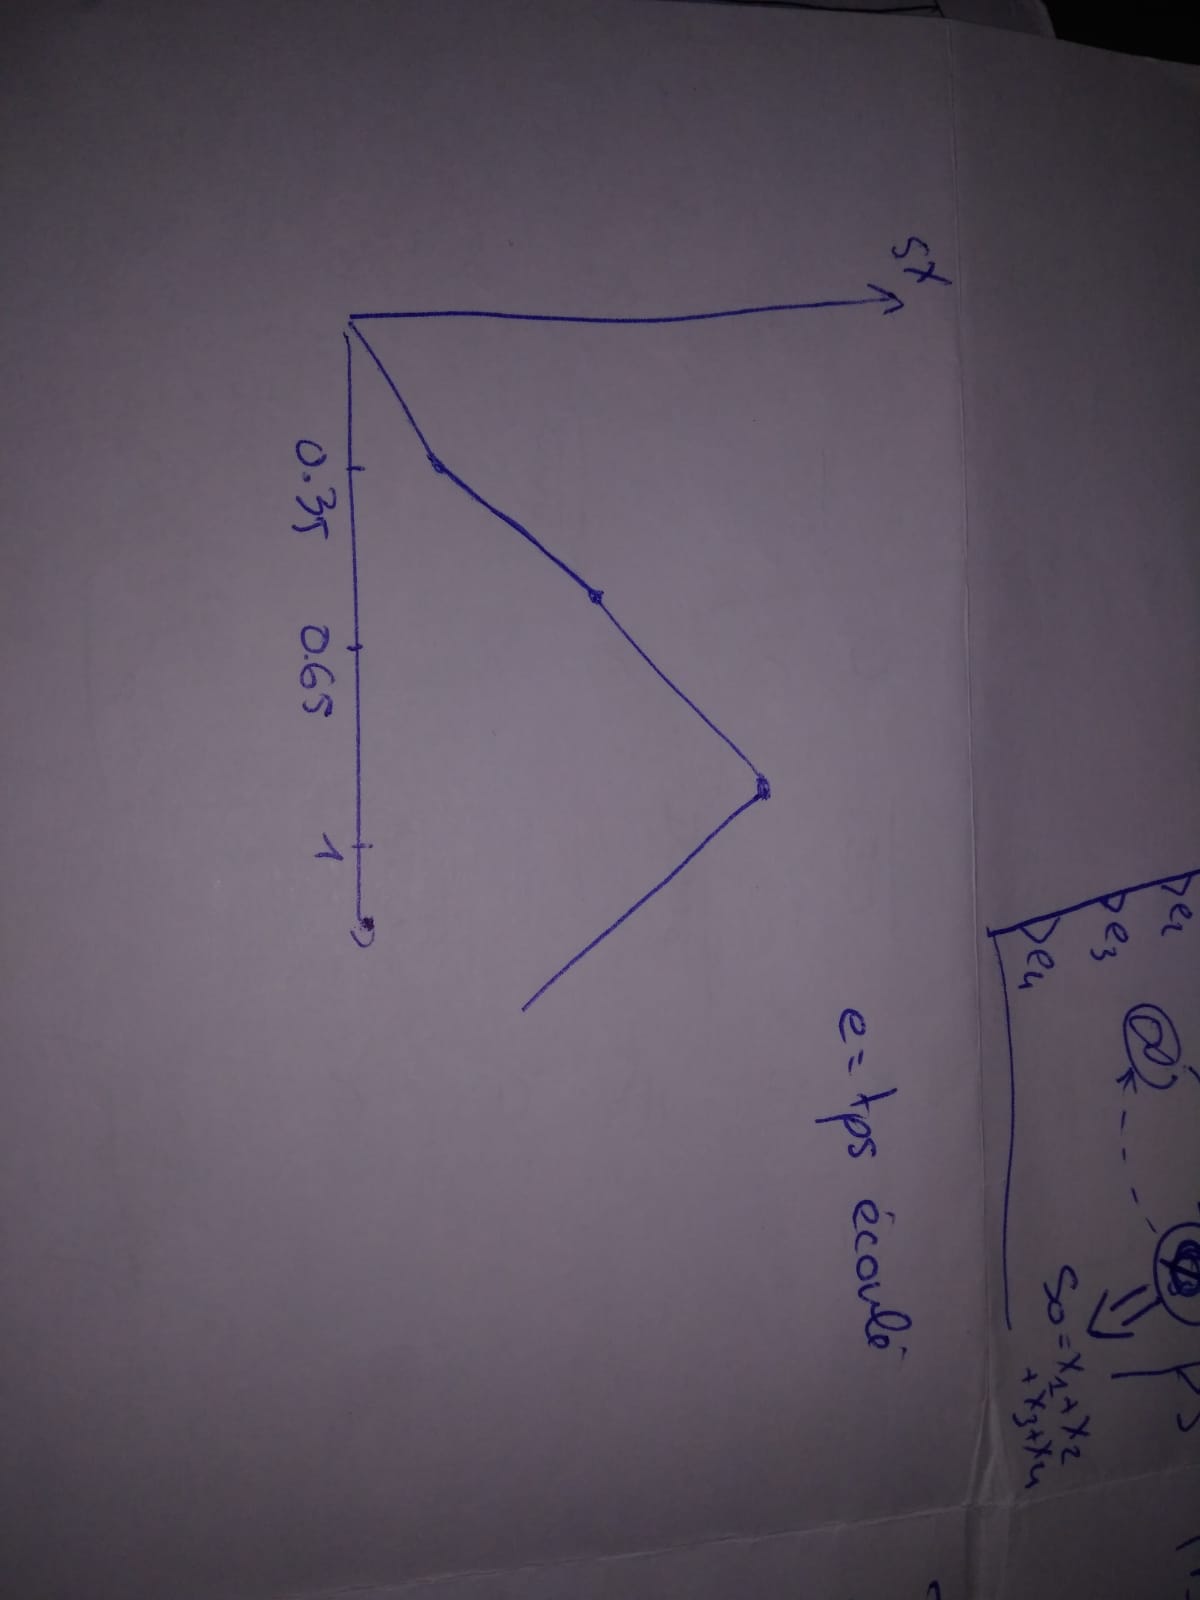 e2
e3
e4
S0 = x1 + x2
+ x3 + x4
sx
e = tps écoulé
0.35
0.65
1